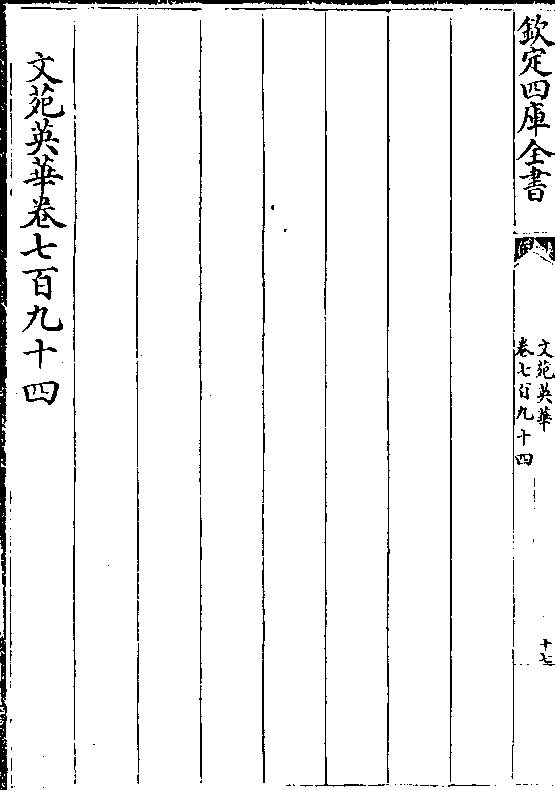 欽定四庫全書
文苑英華
卷七百九十四
十七
文苑英華卷七百九十四